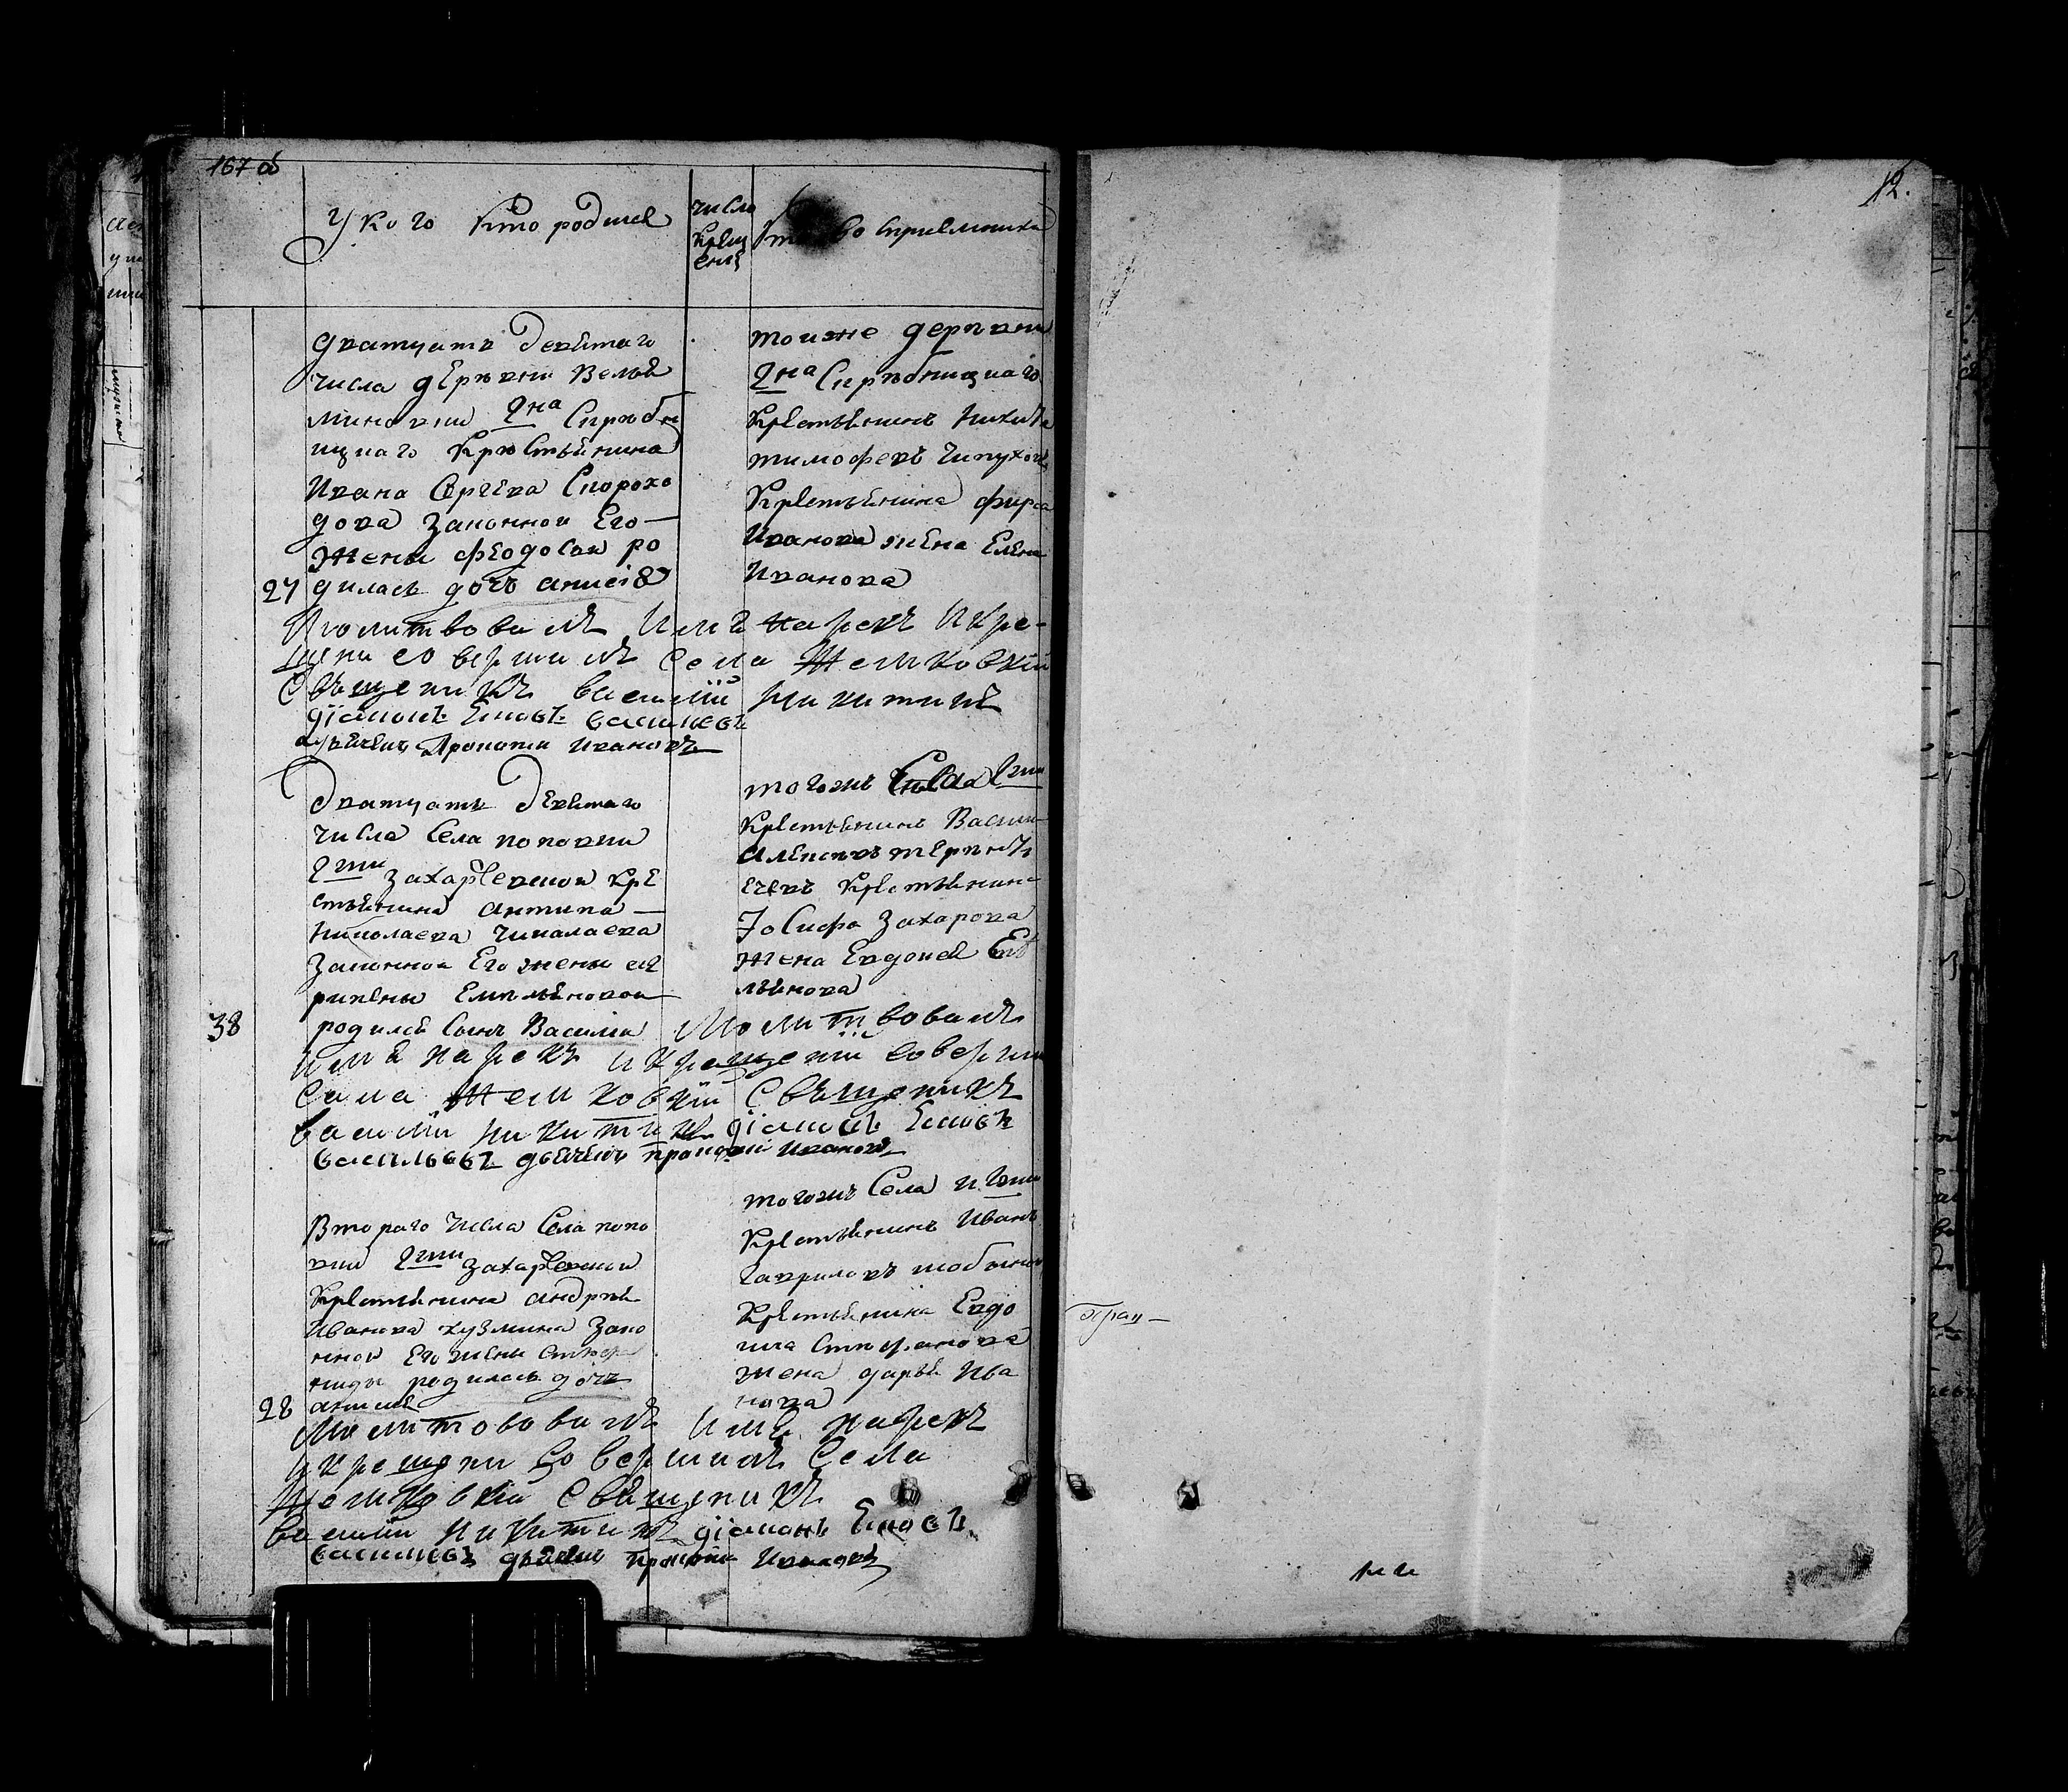 167 об
У кого кто родился
число крещения
кто восприемники
дватцать девятаго
числа деревни Велья
миновки Г̲на̲ Скрѣбн
ицкаго крестьянина
Ивана Сергеева Скорохо
дова законной Его
жены феодосьи ро
27 дилась дочь анисія
тоижe деревни
Г̲на̲ Скрѣбницкаго
крестьянинъ Никита
тимофеевъ
крестьянина фирса
Иванова жена Елена
Иванова
Молитвовалъ имя нарекъ и кре-
щени совершилъ села
Священикъ василій никитинъ
діаконъ Емовъ василиевъ
дьячекъ Прокопи Ивановъ
дватцать девятаго
числа Села поповки
Г̲жи̲ захарьевской кре
стьянина антипа
Николаева Чикалаева
законной Его жены
Емельяновой
38 родился Сынъ Василіи
тогожъ Села Г̲жи̲
крестьянинъ Васили
алексеевъ
крестьянина
Іосифа Захарова
жена Евдокея Еме
льянова
Молитвовалъ
имя нарекъ и крещеніи соверши
села Священикъ
василій никитинъ діаконъ Емовъ
васильевъ дьячекъ прокопій Ивановъ
Втораго числа Села попо
вки Г̲жи̲ захарьевской
крестьянина андрея
Иванова кузмина зако
нной Его жены степа
ниды родилась дочь
28 анисия
тогожъ Села и Г̲жи̲
крестьянинъ Иванъ
гавриловъ
крестьянина Евдо
кима Стефанова
жена дарья Ива
нова
Молитвовалъ имя нарекъ
и крещени совершилъ Села
Священикъ
василии никитинъ діаконъ Емовъ
василиевъ дьячекъ прокопии Ивановъ
12.